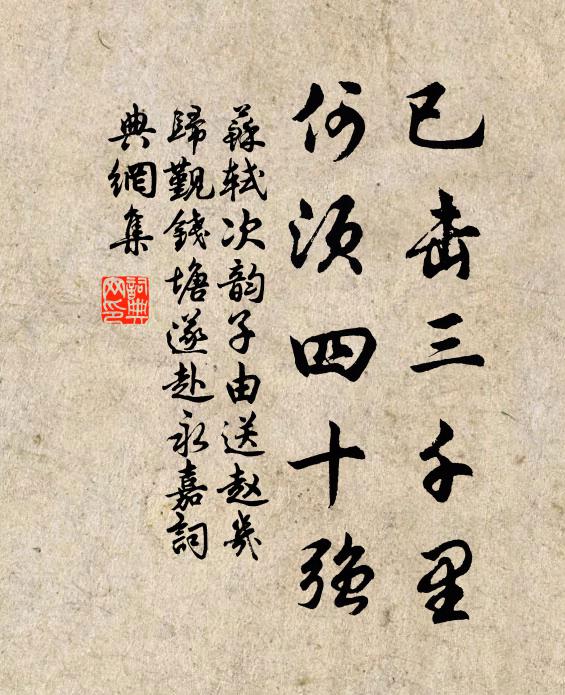 已击三千里
何须四十强
蘇轼次韵子由送赵㞦
歸觐錢塘遂赴永嘉詞
典網集
詞典
网印